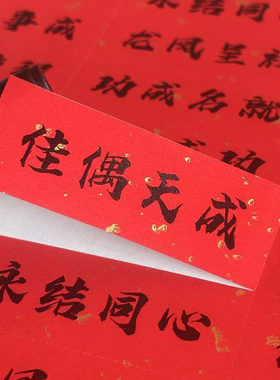 永结同
事成
龙凤呈祥
功成名就
成功
佳偶天成
永结同心